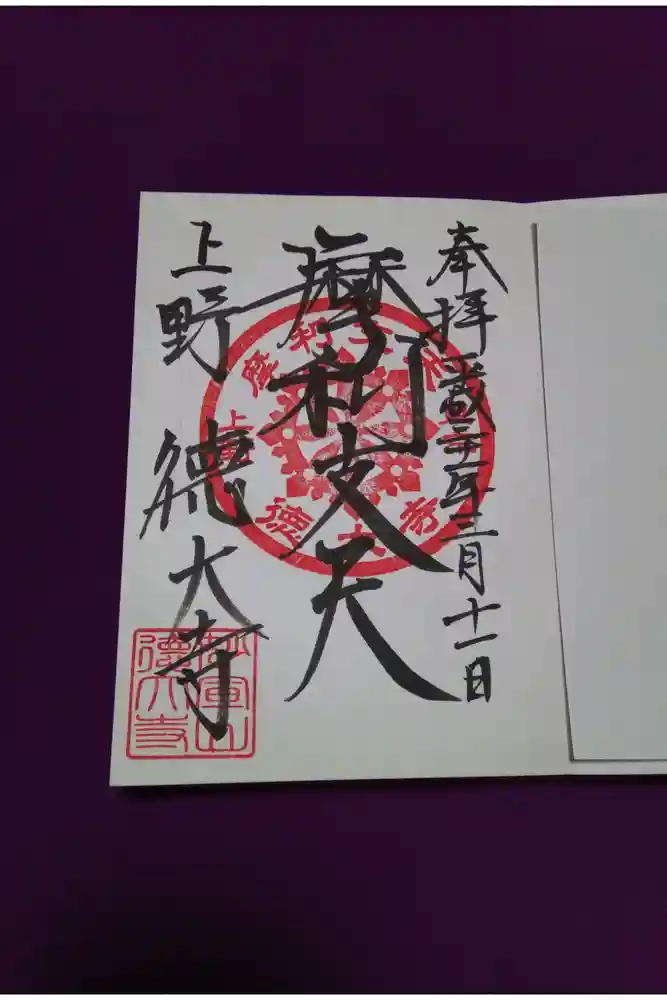 奉拝 平成三十一年二月十一日
摩利支天
上野 徳大寺
摩利支天
徳大寺
徳大寺